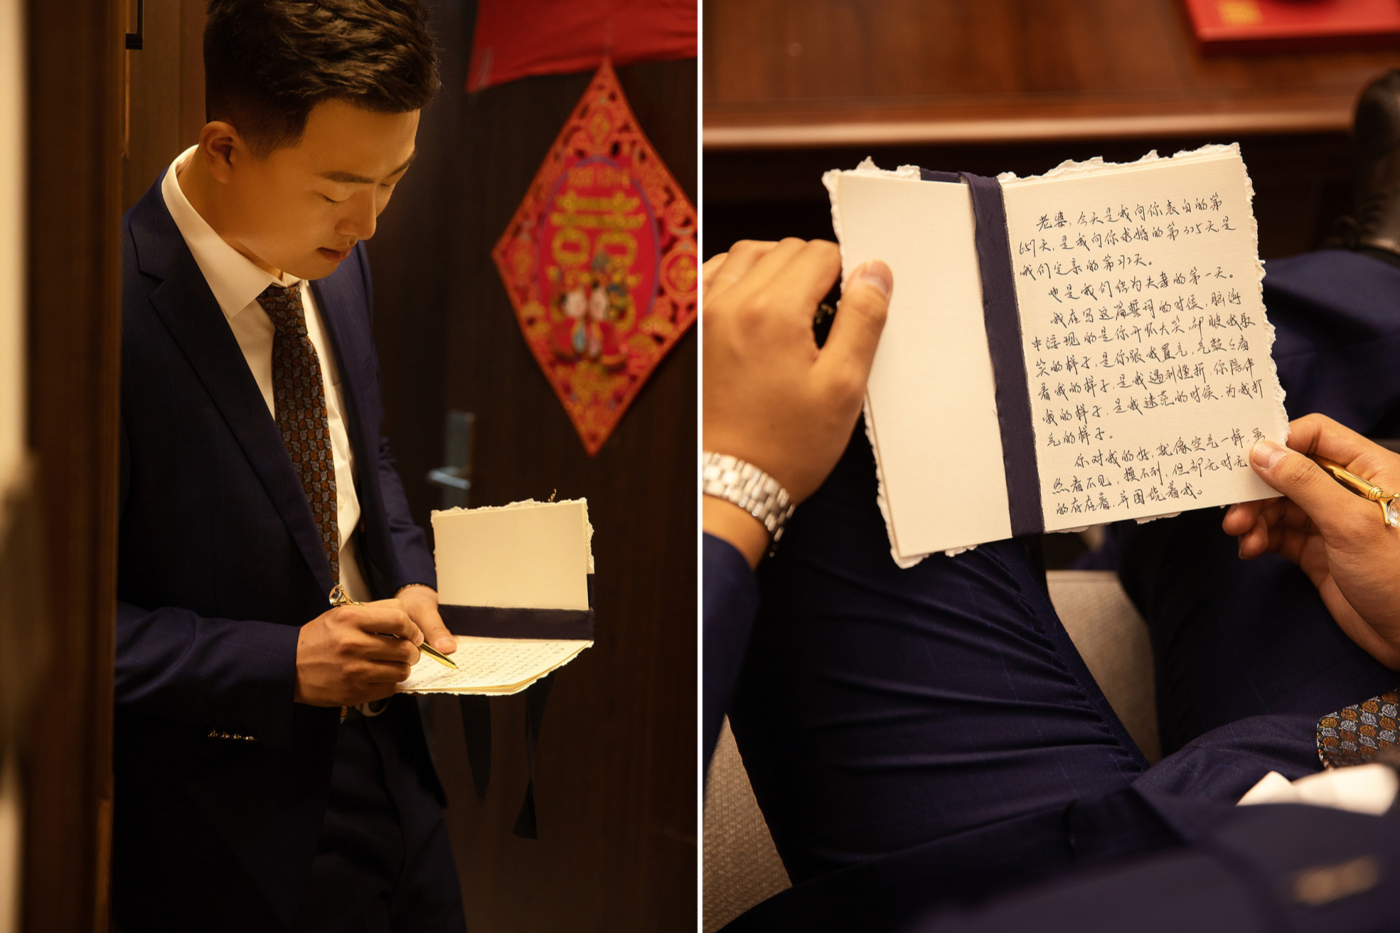 囍
老婆,今天是我向你表白的第
651天,是我向你求婚的第325天是
我们定亲的第312天。
也是我们作为夫妻的第一天。
我在写这篇誓词的时候,脑海
中浮现的是你开怀大笑,却被我取
笑的样子,是你跟我置气,气鼓鼓看
着我的样子,是我遇到挫折,你陪伴
我的样子,是我迷茫的时候,为我打
气的样子。
你对我的好,就像空气一样,虽
然看不见,摸不到,但却无时无
的存在着,并围绕着我。